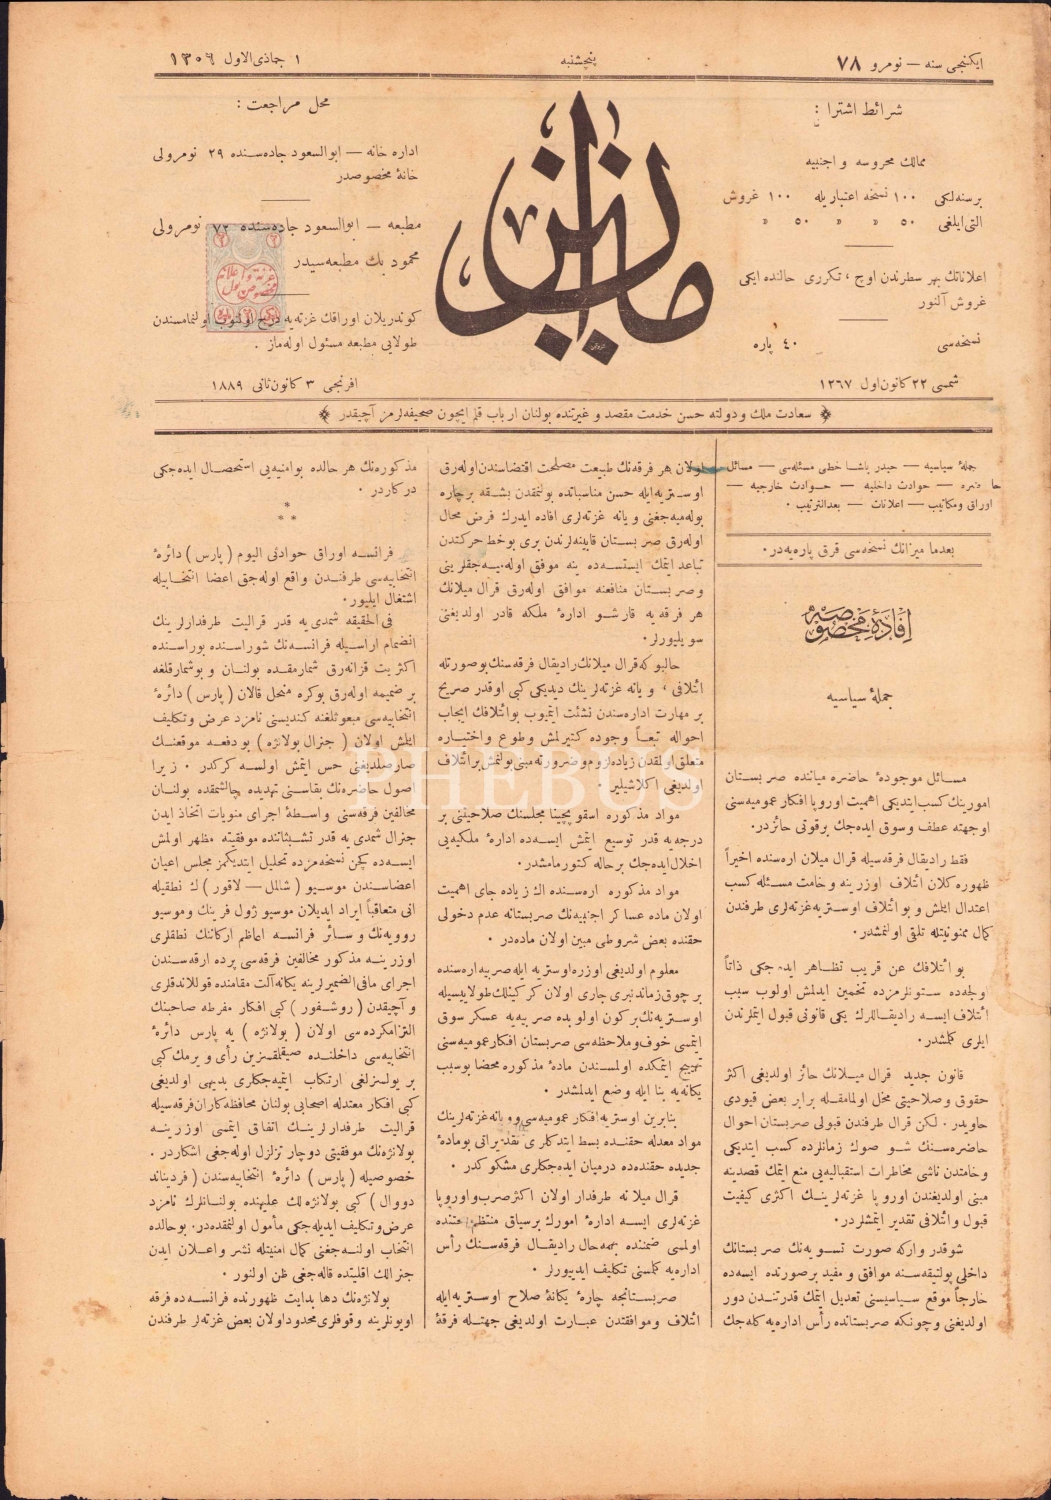 ایكنجی سنه — نومرو ٧٨
پنچشنبه
١ جماذی‌الاول ١٣٠٦
شرائط اشترا :
ممالك محروسه و اجنبیه
برسنه‌لكی ١٠٠ نسخه اعتباریله ١٠٠ غروش
التی‌ایلغی ٥٠ » » ٥٠ »
اعلاناتك بهر سطرندن اوچ ، تكرری حالنده ایكی
غروش آلنور
نسخه‌سی ٤٠ پاره
شمسی ٢٢ كانون‌اول ١٢٦٧
میزان
محل مراجعت :
اداره خانه — ابوالسعود جاده‌سنده ٢٩ نومرولی
خانهٔ مخصوصدر
مطبعه — ابوالسعود جاده‌سنده ٧٢ نومرولی
محمود بك مطبعه‌سیدر
كوندریلان اوراقك غزته‌یه درج اولنوب اولنمامسندن
طولایی مطبعه مسئول اوله‌ماز .
افرنجی ٣ كانون‌ثانی ١٨٨٩
سعادت ملك و دولته حسن خدمت مقصد و غیرتنده بولنان ارباب قلم ایچون صحیفه‌لرمز آچیقدر
جملهٔ سیاسیه — حیدر پاشا خطی مسئله‌سی — مسائل
حاضره — حوادث داخلیه — حوادث خارجیه —
اوراق ومكاتیب — اعلانات — بعدالترتیب .
بعدما میزانك نسخه‌سی قرق پاره‌یه‌در .
افادهٔ مخصوصه
جملهٔ سیاسیه
مسائل موجودهٔ حاضره میاننده صربستان
امورینك كسب ایتدیكی اهمیت اوروپا افكار عمومیه‌سنی
اوجهته عطف وسوق ایده‌جك برقوتی حائزدر.
فقط رادیقال فرقه‌سیله قرال میلان اره‌سنده اخیراً
ظهوره كلان ائتلاف اوزرینه وخامت مسئله كسب
اعتدال ایتلش و بو ائتلاف اوستریه غزته‌لری طرفندن
كمال ممنونیتله تلقی اولنمشدر.
بو ائتلافك عن قریب تظاهر ایده‌جكی ذاتاً
اولجه‌ده ستونلرمزده تخمین ایدلمش اولوب سبب
ائتلاف ایسه رادیقاللرك یكی قانونی قبول ایتملرندن
ایلری كلمشدر.
قانون جدید قرال میلانك حائز اولدیغی اكثر
حقوق وصلاحیتی مخل اولمامقله برابر بعض قیودی
حاویدر . لكن قرال طرفندن قبولی صربستان احوال
حاضره‌سنك شو صوك زمانلرده كسب ایتدیكی
وخامتدن ناشی مخاطرات استقبالیه‌یی منع ایتمك قصدینه
مبنی اولدیغندن اوروپا غزته‌لرینك اكثری كیفیت
قبول و ائتلافی تقدیر ایتمشلردر.
شوقدر واركه صورت تسویه‌نك صربستانك
داخلی پولتیقه‌سنه موافق و مفید برصورتده ایسه‌ده
خارجاً موقع سیاسیسنی تعدیل ایتمك قدرتندن دور
اولدیغی وچونكه صربستانده رأس اداره‌یه كله‌جك
اولان هر فرقه‌نك طبیعت مصلحت اقتضاسندن اوله‌رق
اوستریه‌ایله حسن مناسباتده بولنمقدن بشقه برچاره
بوله‌میه‌جغنی ویانه غزته‌لری افاده ایدرك فرض محال
اوله‌رق صربستان قابینه‌لرندن بری بوخط حركتدن
تباعد ایتمك ایستسه‌ده ینه موفق اوله‌میه‌جقلرینی
وصربستان منافعنه موافق اوله‌رق قرال میلانك
هر فرقه‌یه قارشو ادارهٔ ملكه قادر اولدیغنی
سویلیورلر.
حالبوكه قرال میلانك رادیقال فرقه‌سنك بوصورتله
ائتلافی ، ویانه غزته‌لرینك دیدیكی كبی اوقدر صریح
بر مهارت اداره‌سندن نشئت ایتمیوب بوائتلافك ایجاب
احواله تبعاً وجوده كتیرلمش وطوع واختیاره
متعلق اولمقدن زیاده لزوم وضرورته مبنی بولنمش بر ائتلاف
اولدیغی اكلاشیلیر.
مواد مذكوره اسقوپچینا مجلسنك صلاحیتنی بر
درجه‌یه قدر توسیع ایتمش ایسه‌ده ادارهٔ ملكیه‌یی
اخلال ایده‌جك برحاله كتورمامشدر.
مواد مذكوره اره‌سنده اك زیاده جای اهمیت
اولان ماده عساكر اجنبیه‌نك صربستانه عدم دخولی
حقنده بعض شروطی مبین اولان ماده‌در .
معلوم اولدیغی اوزره اوستریه ایله صربیه اره‌سنده
بر چوق زماندنبری جاری اولان كركینلك طولاییسیله
اوستریه‌نك بركون اولوبده صربیه‌یه عسكر سوق
ایتمسی خوف وملاحظه‌سی صربستان افكار عمومیه‌سنی
تهییج ایتمكده اولمسندن مادهٔ مذكوره محضا بوسبب
یكانه‌یه بنا ایله وضع ایدلمشدر.
بنابرین اوستریه افكار عمومیه‌سی وویانه غزته‌لرینك
مواد معدله حقنده بسط ایتدكلری تقدیراتی بومادهٔ
جدیده حقنده‌ده درمیان ایده‌جكلری مشكوكدر .
قرال میلانه طرفدار اولان اكثر صرب واوروپا
غزته‌لری ایسه ادارهٔ امورك برسیاق منتظم حقنده
اولمسی ضمننده بهمه‌حال رادیقال فرقه‌سنك رأس
اداره‌یه كلمسنی تكلیف ایدییورلر .
صربستانجه چارهٔ یكانهٔ صلاح اوستریه‌ایله
ائتلاف وموافقتدن عبارت اولدیغی جهتله فرقهٔ
مذكوره‌نك هر حالده بوامنیه‌یی استحصال ایده‌جكی
دركاردر .
*
* *
فرانسه اوراق حوادثی الیوم ( پارس ) دائرهٔ
انتخابیه‌سی طرفندن واقع اوله‌جق اعضا انتخابیله
اشتغال ایلیور .
فی‌الحقیقه شمدی‌یه قدر قرالیت طرفدارلرینك
انضمام اراسیله فرانسه‌نك شوراسنده بوراسنده
اكثریت قزانه‌رق شمارمقده بولنان و بوشمارقلغه
بر ضمیمه اوله‌رق بوكره منحل قالان ( پارس ) دائرهٔ
انتخابیه‌سی مبعوثلغنه كندیسنی نامزد عرض وتكلیف
ایتلش اولان ( جنرال بولانژه ) بودفعه موقعنك
صارصلدیغنی حس ایتمش اولسه كركدر . زیرا
اصول حاضره‌نك بقاسنی تهدیده چالشمقده بولنان
مخالفین فرقه‌سنی واسطهٔ اجرای منویات اتخاذ ایدن
جنرال شمدی‌یه قدر تشبثاتنده موفقیته مظهر اولمش
ایسه‌ده كچن نسخه‌مزده تحلیل ایتدیكمز مجلس اعیان
اعضاسندن موسیو ( شالمل — لاقور ) ك نطقیله
انی متعاقباً ایراد ایدیلان موسیو ژول فرینك وموسیو
روویه‌نك وسائر فرانسه اعاظم اركاننك نطقلری
اوزرینه مذكور مخالفین فرقه‌سی پرده ارقه‌سندن
اجرای مافی‌الضمیرلرینه یكانه آلت مقامنده قوللاندقلری
و آچیقدن ( روشفور ) كبی افكار مفرطه صاحبنك
التزامكرده‌سی اولان ( بولانژه ) یه پارس دائرهٔ
انتخابیه‌سی داخلنده صیقلمقسزین رأی و یرمك كبی
بر یولسزلغی ارتكاب ایتمیه‌جكلری بدیهی اولدیغی
كبی افكار معتدله اصحابی بولنان محافظه‌كاران فرقه‌سیله
قرالیت طرفدارلرینك اتفاق ایتمسی اوزرینه
بولانژه‌نك موفقیتی دوچار تزلزل اوله‌جغی اشكاردر .
خصوصیله ( پارس ) دائرهٔ انتخابیه‌سندن ( فردیناند
دووال ) كبی بولانژه‌لك علیهنده بولنانلرك نامزد
عرض وتكلیف ایدیله‌جكی مأمول اولنمقده‌در. بوحالده
انتخاب اولنه‌جغنی كمال امنیتله نشر واعلان ایدن
جنرالك اقلیتده قاله‌جغی ظن اولنور .
بولانژه‌نك دها بدایت ظهورنده فرانسه‌ده فرقه
اویونلرینه وقوفلری محدود اولان بعض غزته‌لر طرفندن
PHEBUS